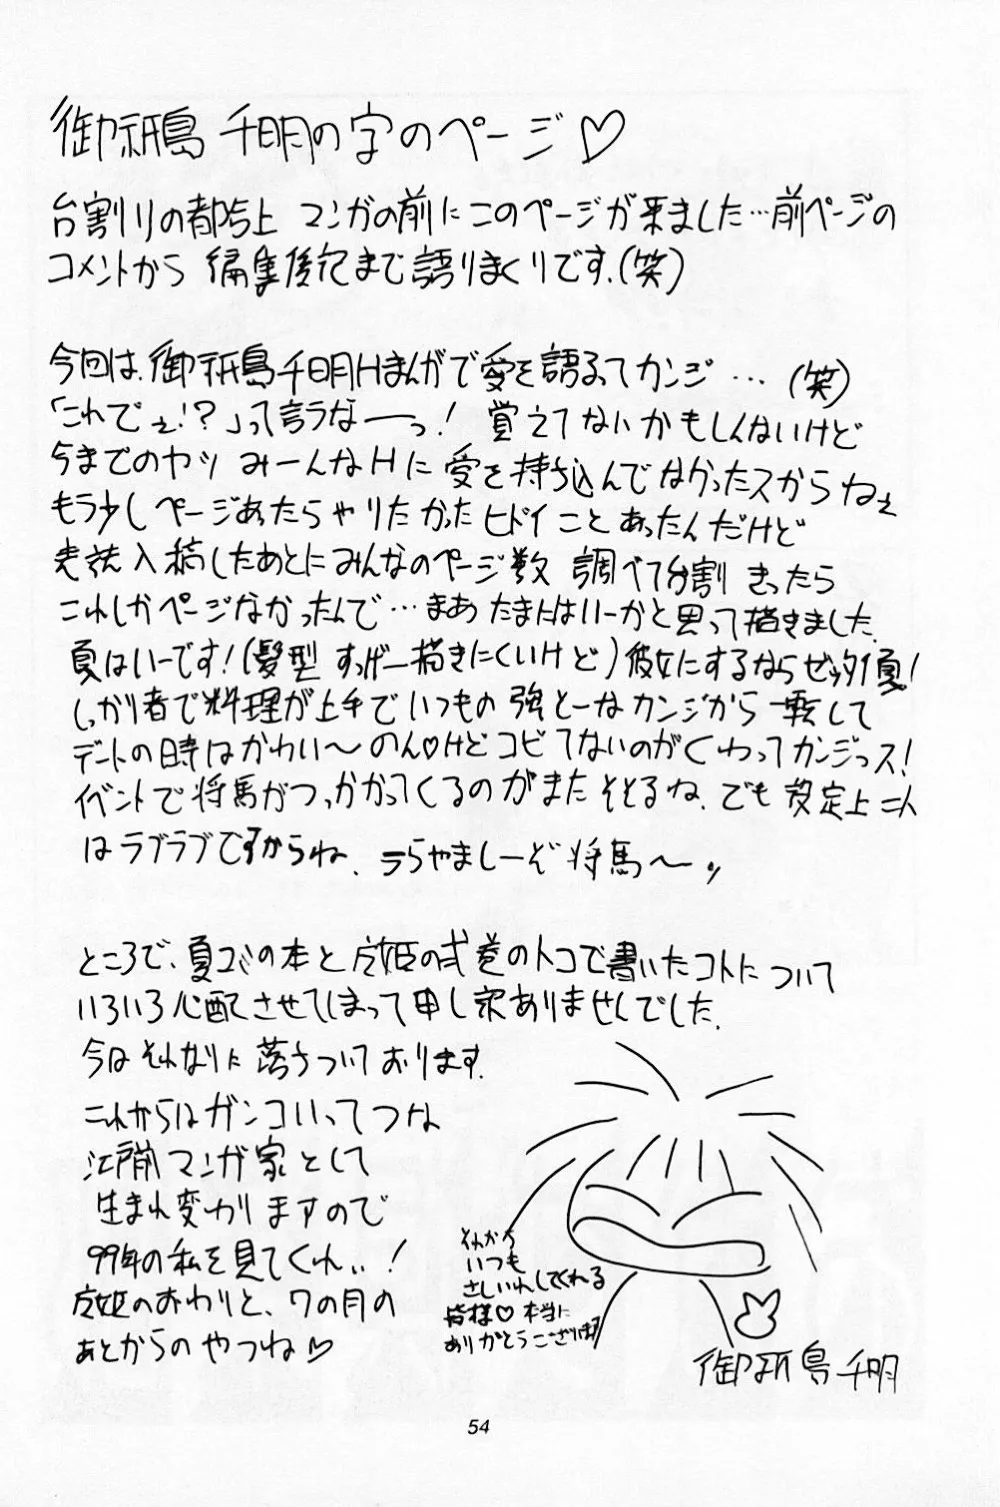 御祇島 千明の字のページ♡
台割りの都合上 マンガの前にこのページが来ました…前ページの
コメントから 編集後記まで語りまくりです.(笑)
今回は、御祇島千明Hまんがで愛を語るってカンジ…(笑)
「これでぇ!?」って言うなーっ! 覚えてないかもしんないけど
今までのヤツ みーんなHに愛を持ち込んでなかったスからねぇ
もう少しページあったらやりたかったヒドイことあったんだけど
表紙入稿したあとにみんなのページ数 調べて台割きったら
これしかページなかったんで…まあたまにはいーかと思って描きました.
夏はいーです!(髪型 すっげー描きにくいけど)彼女にするならゼッタイ夏!
しっかり者で料理が上手でいつもの強とーなカンジから一転して
デートの時はかわい〜のん♡けどコビてないのがくわってカンジっス!
イベントで将馬がつっかかってくるのがまたそそるね、でも設定上二人
はラブラブですからね、うらやましーぞ将馬〜ッ
ところで、夏コミの本と 姫の弐巻のトコで書いたコトについて
いろいろ心配させてしまって申し訳ありませんでした.
今はそれなりに落ちついております.
これからはガンコいってつな
江戸前マンガ家として
生まれ変わりますので
99年の私を見てくれぃ!
姫のおわりと、ワの月の
あとからのやつね♡
それから
いつも
さしいれしてくれる
皆様♡本当に
ありがとうございます
御祇島千明
54